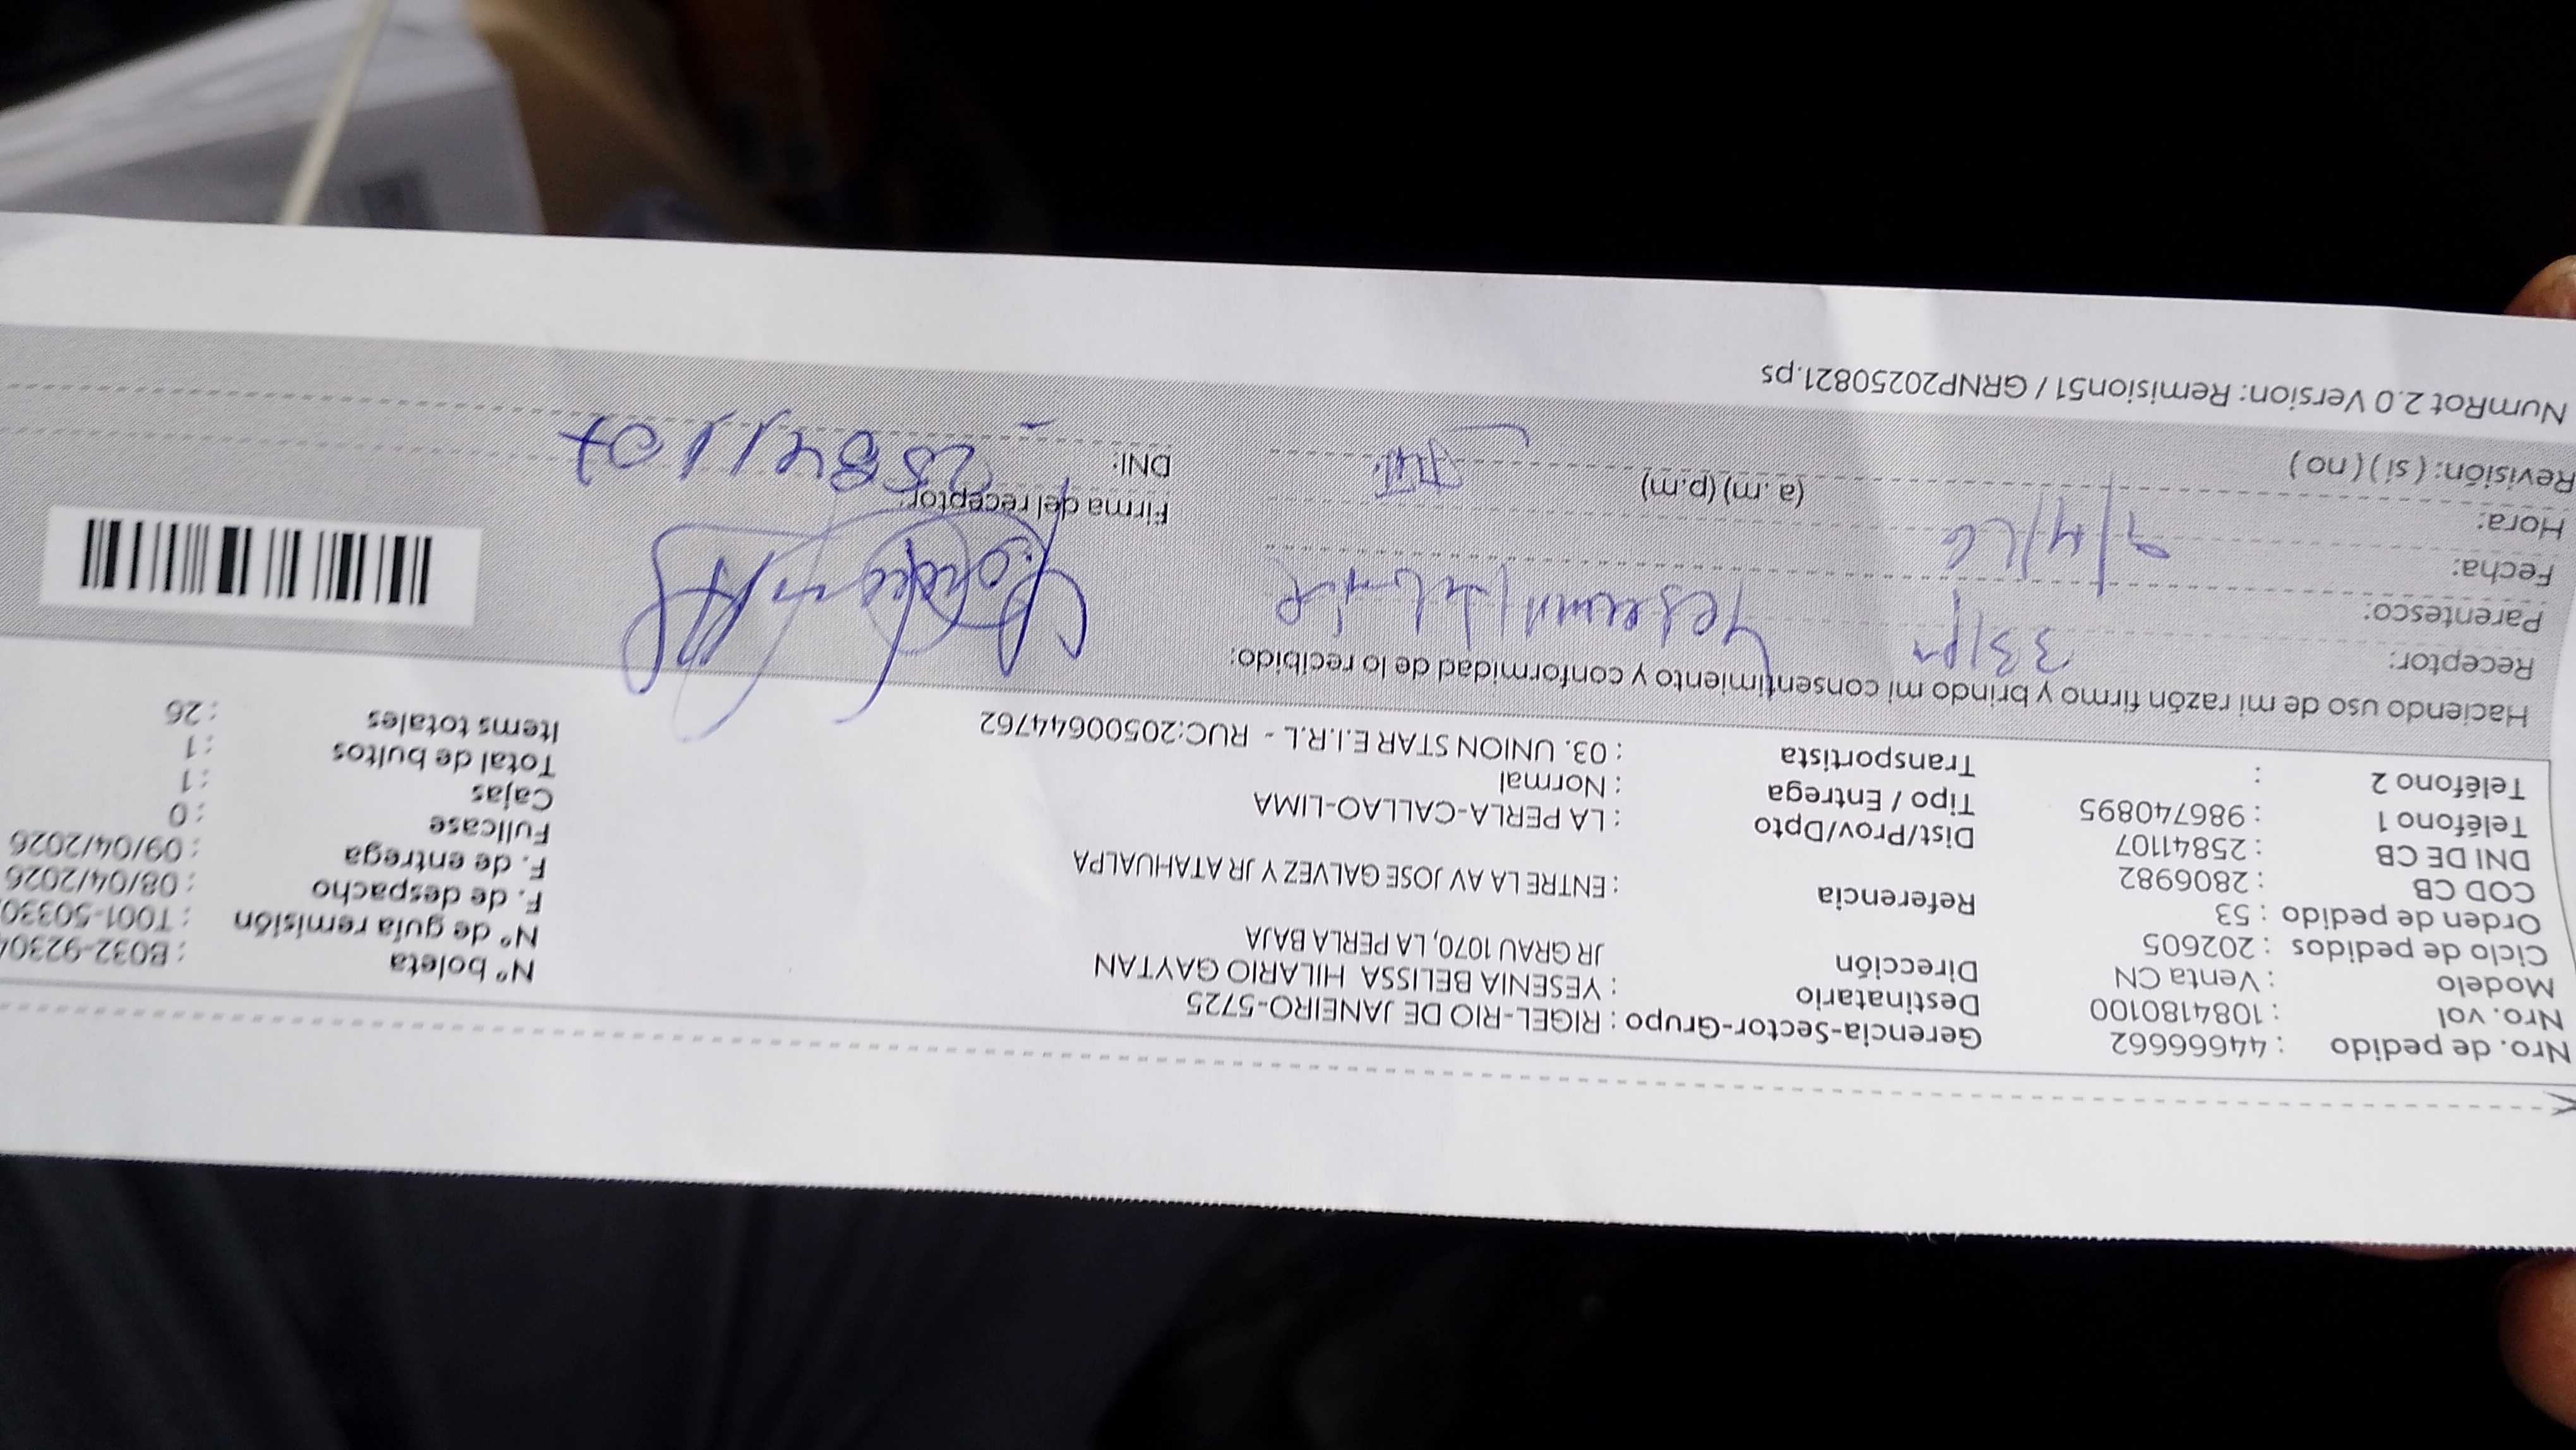 Nro. de pedido : 44666662 Gerencia-Sector-Grupo : RIGEL-RIO DE JANEIRO-5725 Nº boleta : B032-92304
Nro. vol : 1084180100 Destinatario : YESENIA BELISSA HILARIO GAYTAN Nº de guía remisión : T001-50330
Modelo : Venta CN Dirección JR GRAU 1070, LA PERLA BAJA F. de despacho : 08/04/2026
Ciclo de pedidos : 202605 F. de entrega : 09/04/2026
Orden de pedido : 53 Referencia : ENTRE LA AV JOSE GALVEZ Y JR ATAHUALPA Fullcase : 0
COD CB : 2806982 Cajas : 1
DNI DE CB : 25841107 Dist/Prov/Dpto : LA PERLA-CALLAO-LIMA Total de bultos : 1
Teléfono 1 : 986740895 Tipo / Entrega : Normal Items totales : 26
Teléfono 2 : Transportista : 03. UNION STAR E.I.R.L - RUC:20500644762
Haciendo uso de mi razón firmo y brindo mi consentimiento y conformidad de lo recibido:
Receptor:
Parentesco:
Fecha: 9/4/26
Hora: (a.m) (p.m) Firma del receptor:
Revisión: ( si ) ( no ) DNI: 25841107
NumRot 2.0 Version: Remision51 / GRNP20250821.ps